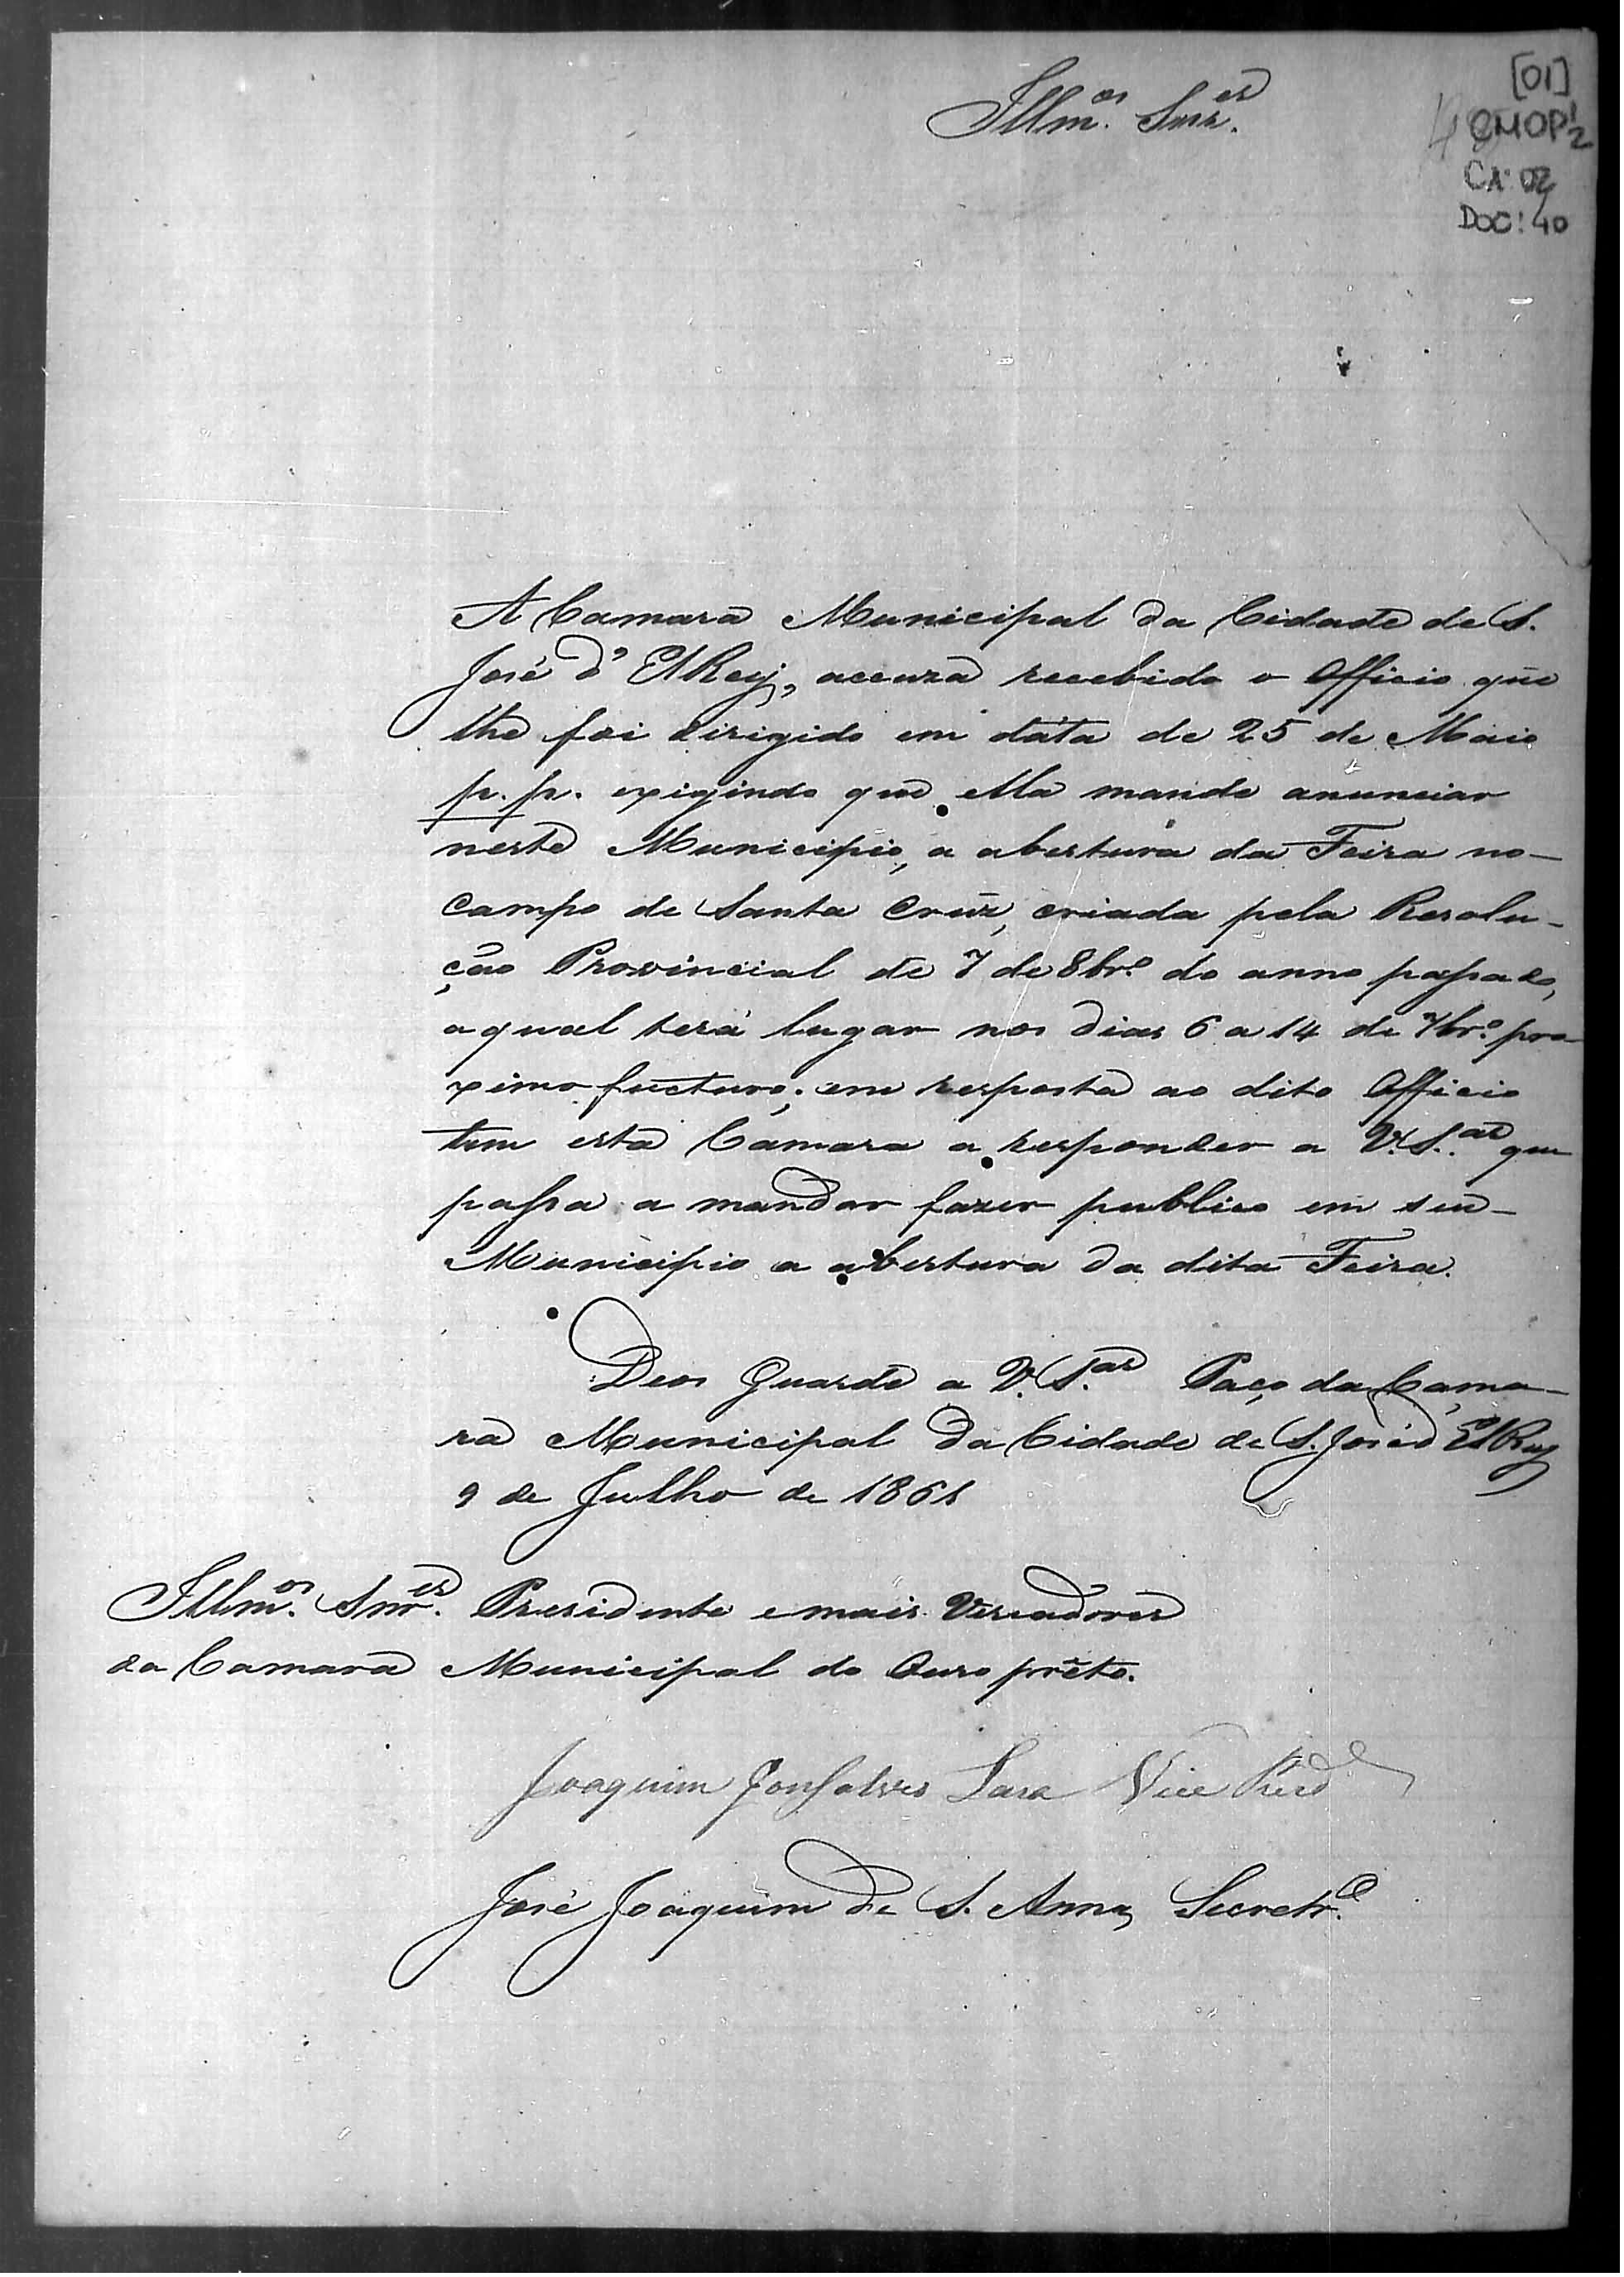 [01]
CMOP 1/2
CX: 02
DOC: 40
Illm.os Snr.es
A Camara Municipal da Cidade de S.
José d' ElRey, acuza recebido o Officio que
lhe foi dirigido em dáta de 25 de Maio
p. p. exigindo que ella mande anunciar
neste Municipio, a abertura da Feira no-
campo de Santa Cruz, criada pela Resolu-
ção Provincial de 7 de 8br.o do anno passado,
aqual terá lugar nos dias 6 a 14 de 7br.o pro-
ximo fucturo; em resposta ao dito Officio
tem esta Camara a responder a V.S.as que
passa a mandar fazer publico em seu-
Municipio a abertura da dita Feira.
Deos Guarde a V.S.as Paço da Cama-
ra Municipal da Cidade de S. José d' ElRey
9 de Julho de 1861
Illm.os Snr.es Presidente e mais Vereadores
da Camara Municipal do Ouro prêto.
Joaquim Gonsalves Lara Vice Presd.e
José Joaquim de S. Anna, Secretr.o